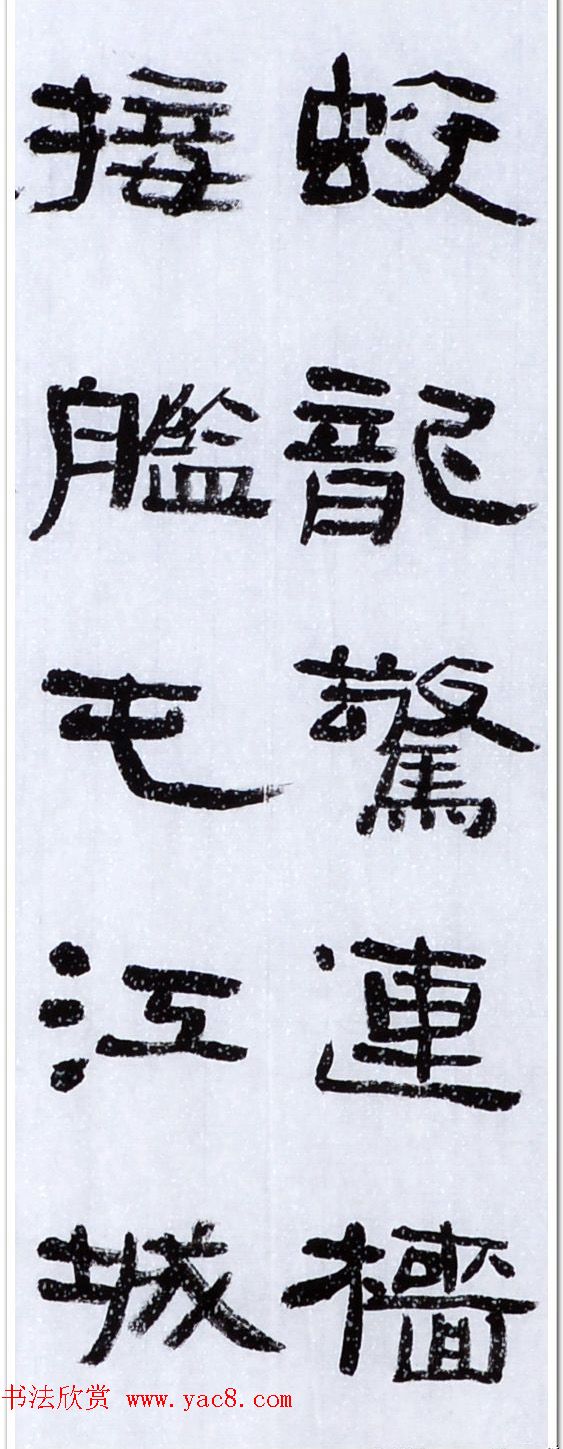 蛟龍驚連檣
接艦屯江城
书法欣赏 www.yac8.com